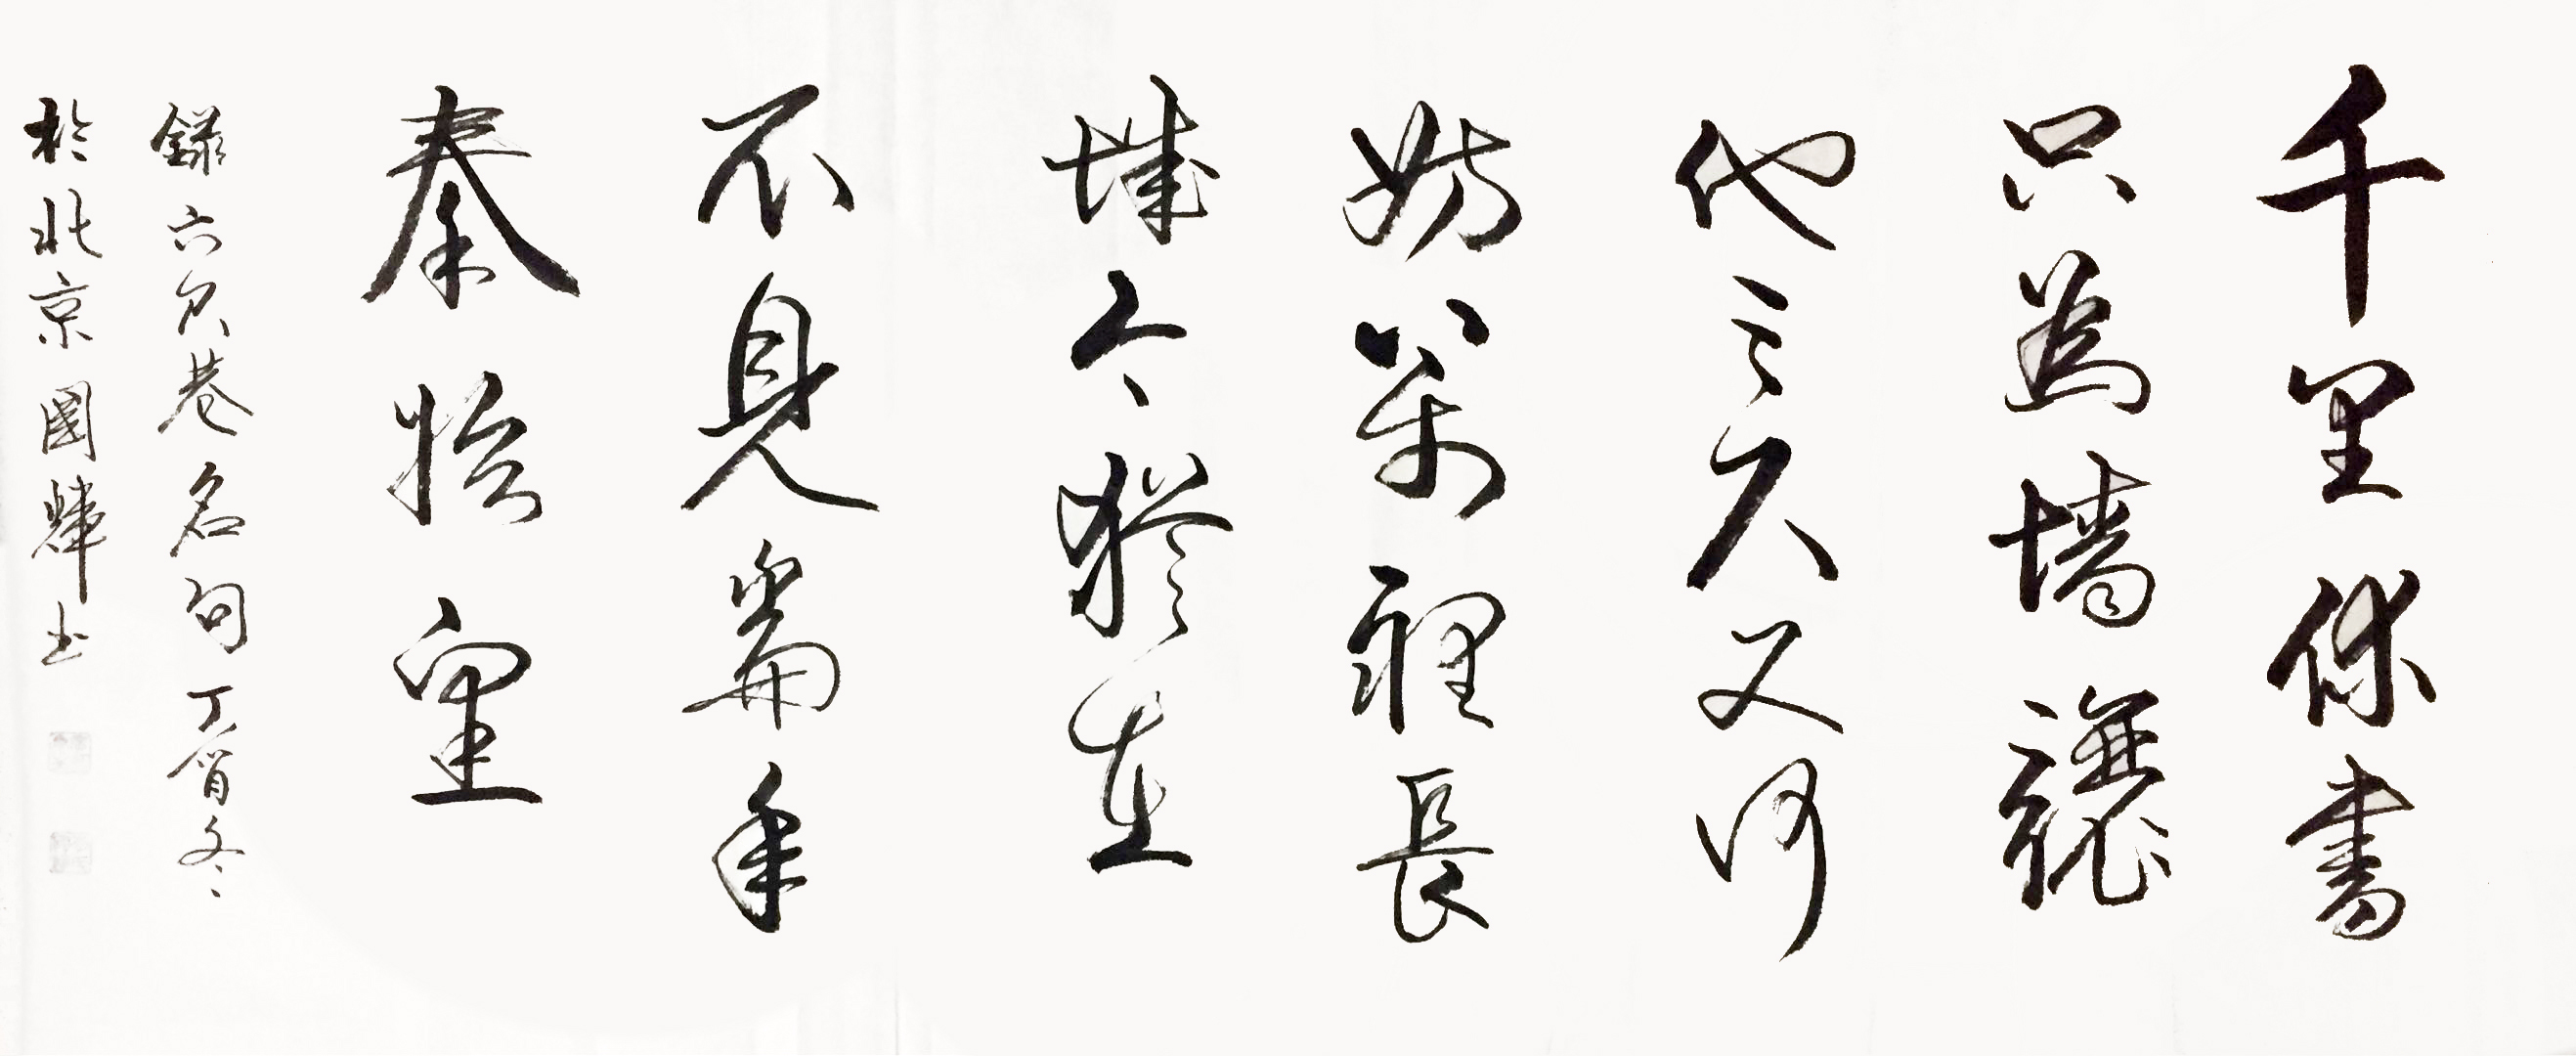 千里修書
只為墻讓
他三尺又何
妨萬裡長
城今猶在
不見當年
秦始皇
錄六尺巷名句丁酉冬
於北京國輝书